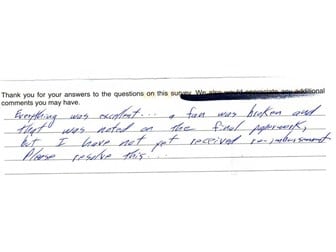 Thank you for your answers to the questions on this survey. We also would appreciate any additional
comments you may have.
Everything was excellent... a fan was broken and
that was noted on the final paperwork,
but I have not yet received reimbursement
Please resolve this...